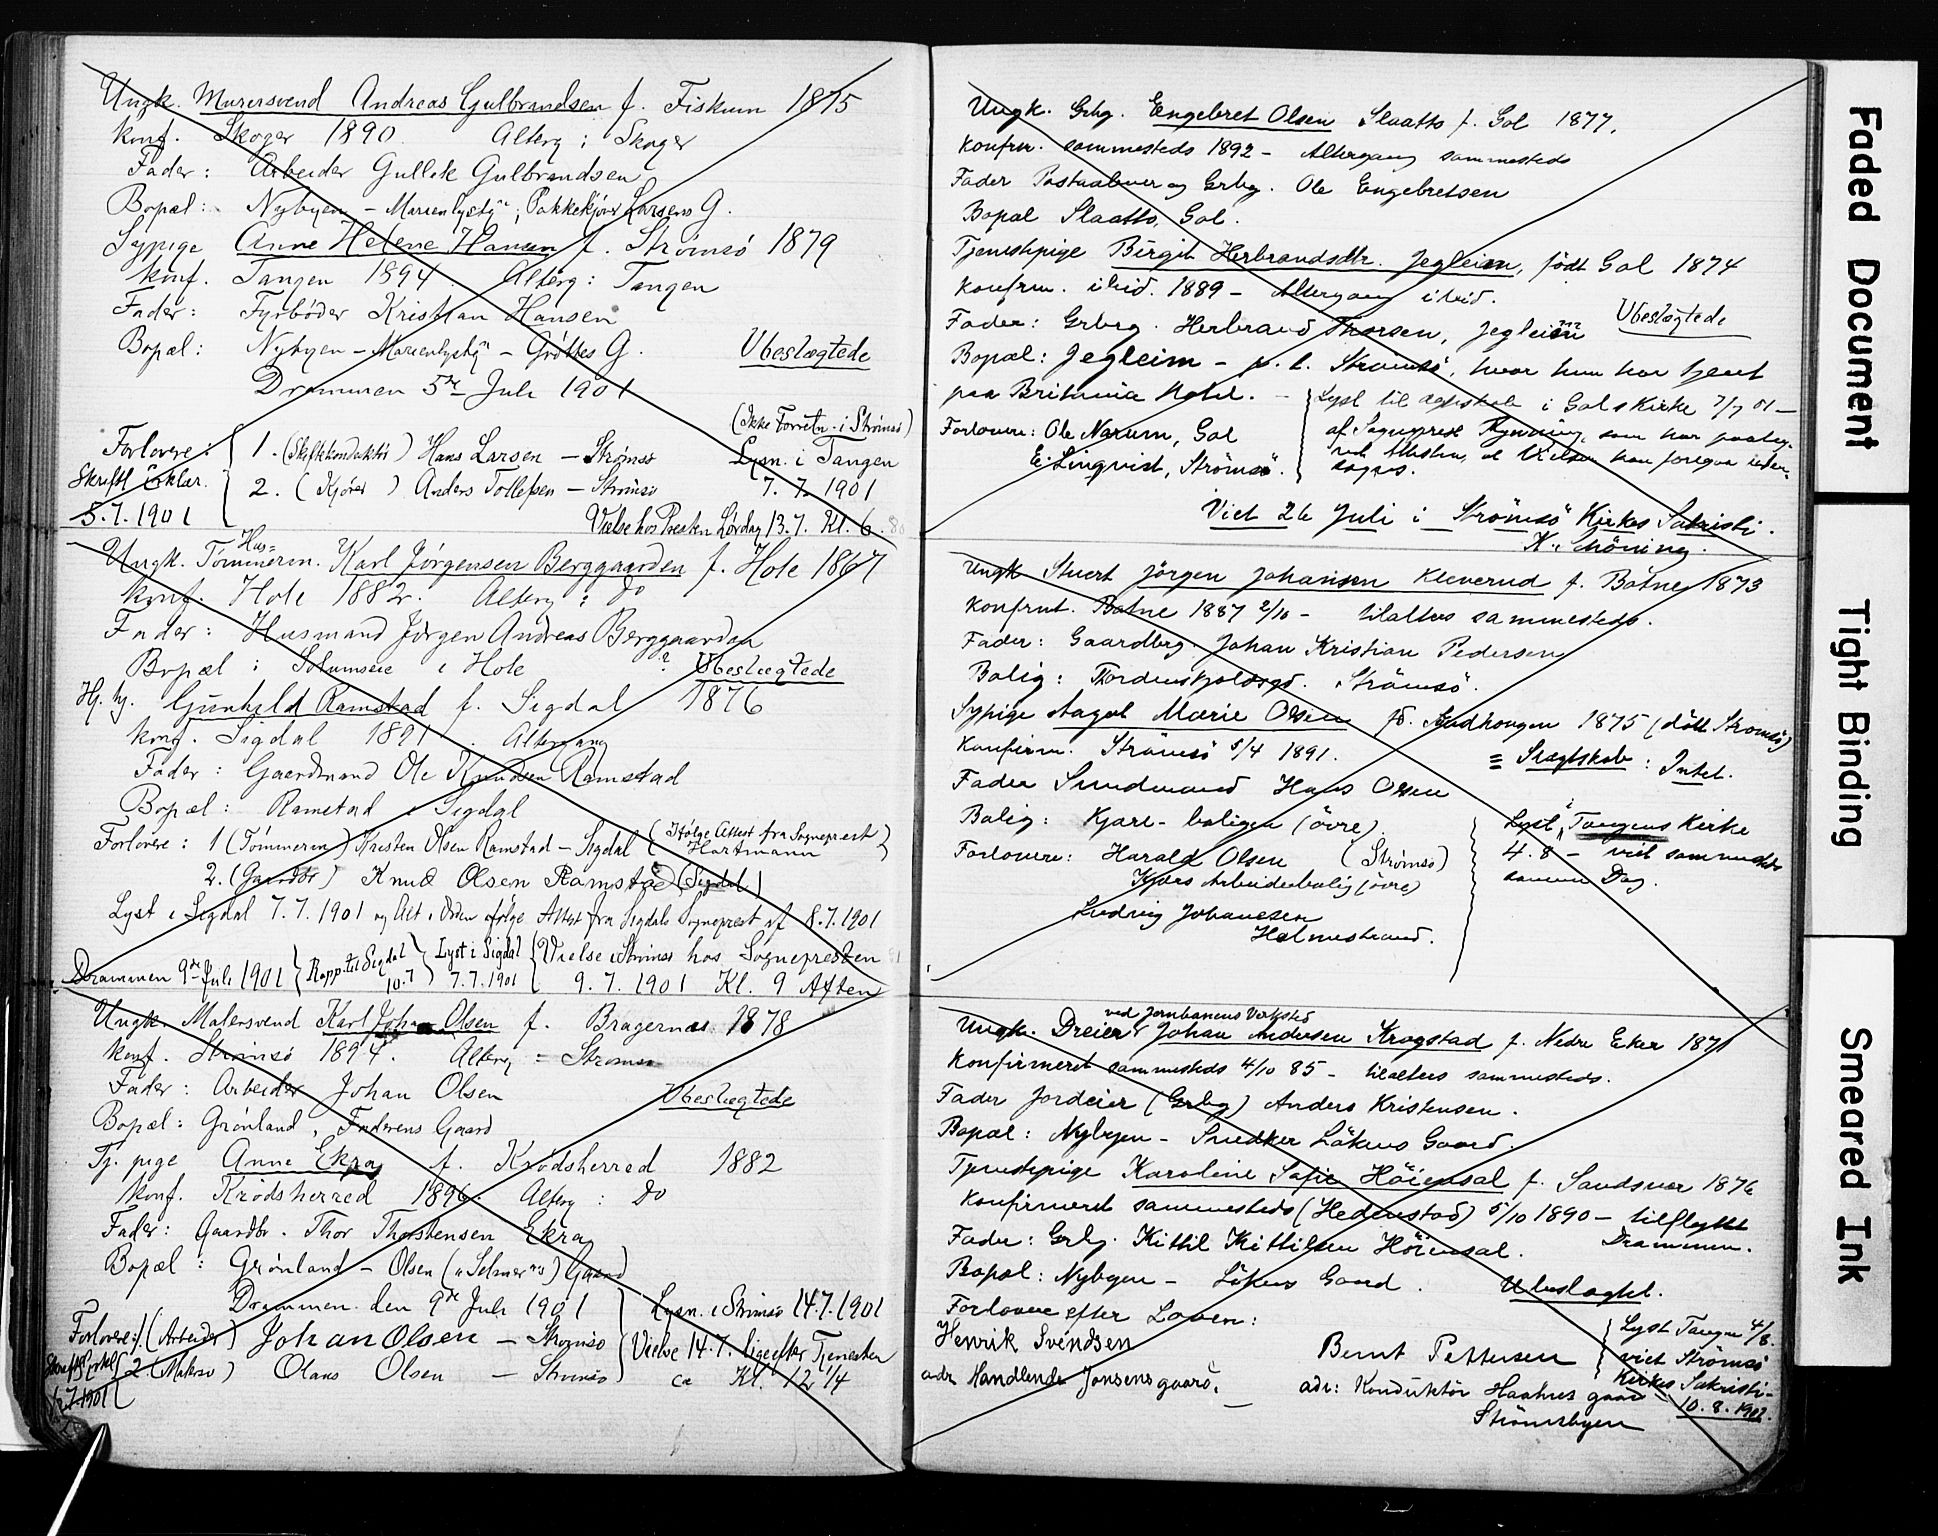 Ungk. Murersvend Andreas Gulbrandsen f. Fiskum 1875
konf. Skoger 1890. Alterg: Skoger
Fader: Arbeider Gullik Gulbrandsen
Bopæl: Nybyen – Marienlystg; Pakkekjører Larsens G.
Sypige Anne Helene Hansen f. Strømsö 1879
konf. Tangen 1894. Alterg: Tangen
Fader: Fyrböder Kristian Hansen
Bopæl: Nybyen – Marienlystg – Gröttes G.
Ubeslægtede
Drammen 5te Juli 1901
(Ikke Forretn. i Strömsö)
Forlovere: 1. (Skiftekonduktör) Hans Larsen – Strømsö
Lysn. i Tangen
Skriftl erklær. 2. (Kjörer) Anders Tollefsen – Strömsö
7. 7. 1901
5.7.1901
Vielse hos Presten Lördag 13.7. Kl. 6.
Hus=
Ungk. Tömmerm. Karl Jørgensen Berggaarden f. Hole 1867
konf. Hole 1882. Alterg: Do
Fader: Husmand Jörgen Andreas Berggaarden
Bopæl: i Hole ? Ubeslægtede
Gunhild Ramstad f. Sigdal 1876
konf. Sigdal 1891. Altergang
Fader: Gaardmand Ole Knudsen Ramstad
Bopæl: Ramstad i Sigdal
Forlovere: 1 (Tömmerm) Kristen Olsen Ramstad – Sigdal (Ifølge Attest fra Sogneprest
Hartmann)
2. (Gaardbr) Knud Olsen Ramstad (Sigdal)
Lyst i Sigdal 7.7.1901 og Alt i Orden ifølge Attest fra Sigdals Sogneprest af 8.7.1901
Drammen 9de Juli 1901 } Rapp. til Sigdal 10.7 } Lyst i Sigdal 7.7.1901 { Vielse i Strömsö hos Sognepresten
9. 7. 1901 Kl. 9 Aften
Ungk. Malersvend Karl Johan Olsen f. Bragernæs 1878
konf. Strømsö 1894. Alterg = Strømsö
Fader: Arbeider Johan Olsen
Ubeslægtede
Bopæl: Grönland, Faderens Gaard
Tj. pige Anne Ekra f. Krödsherred 1882
konf. Krödsherred 1896. Alterg: Do
Fader: Gaardbr. Thor Thorstensen Ekra
Bopæl: Grönland – Olsen („Selmer"s) Gaard
Drammen den 9de Juli 1901
Lysn. i Strömsö 14.7.1901
Forlovere: 1 (Arbeider) Johan Olsen – Strømsö
Vielse 14.7. lige efter Tjenesten
2 (Malersv) Olaus Olsen – Strömsö
ca Kl. 12 1/4
Ungk. Grbg. Engebret Olsen Slaatto f. Gol 1877.
konfrm. sammesteds 1892 – Altergang sammesteds
Fader Postaabner og Grbg. Ole Engebretsen
Bopæl Slaatto, Gol.
Tjenestpige Birgit Herbrandsdtr. Jegleim, født Gol 1874
konfrm. ibid. 1889 – Altergang ibid.
Fader: Grbrg. Herbrand Thorsen, Jegleim
Ubeslægtede
Bopæl: Jegleim – p. t. Strömsö, hvor hun har tjent
paa Britania Hotel. –
Lyst til ægteskab i Gols Kirke 7/7 01 –
Forlovere: Ole Narum, Gol
af Sogneprest Rynning, som har
E. Lingvist, Strömsö.
Viet 26 Juli i Strömsö Kirkes Sakristi.
K. Schöning.
Ungk. Stuert Jörgen Johansen Kleverud f. Botne 1873
Konfrmt. Botne 1887 2/10 – tilalters sammesteds.
Fader: Gaardbrg. Johan Kristian Pedersen
Bolig: Tordenskjoldsgd. Strömsö.
Sypige Aagot Marie Olsen fd. 1875 (döbt Strömsö)
Konfirm. Strömsö 5/4 1891.
= Slægtskab: Intet.
Fader Hans Olsen
Bolig: Kjære-boligen (övre).
Lyst i Tangens Kirke
Forlovere: Harald Olsen (Strømsö)
4.8 – viet sammesteds
Kjøes Arbeiderbolig (övre)
samme Dag.
Ludvig Johanesen
Holmestrand.
ved Jernbanens Verksted
Ungk. Dreier Johan Andersen Krogstad f. Nedre Eker 1871
Konfirmeret sammesteds 4/10 85 – tilalters sammesteds.
Fader Jordeier (Grbg) Anders Kristensen.
Bopæl: Nybyen – Snedker Lökens Gaard.
Tjenestepige Karoline Sofie Höiensal f. Sandsvær 1876
Konfirmeret sammesteds (Hedenstad) 5/10 1890 – tilflyttet
Drammen.
Fader: Grbg. Kittil Kittilsen Höiensal.
Bopæl: Nybyen – Lökens Gaard.
Ubeslægtet.
Forlovere efter Loven:
Henrik Svendsen
Bernt Pettersen
Lyst Tangen 4/8.
viet Strömsö
adr Handlende Jonsens gaard.
adr: Konduktör Haahres gaard
Kirkes Sakristi –
10. 8. 1901.
Strömsbyen
Faded Document
Tight Binding
Smeared Ink